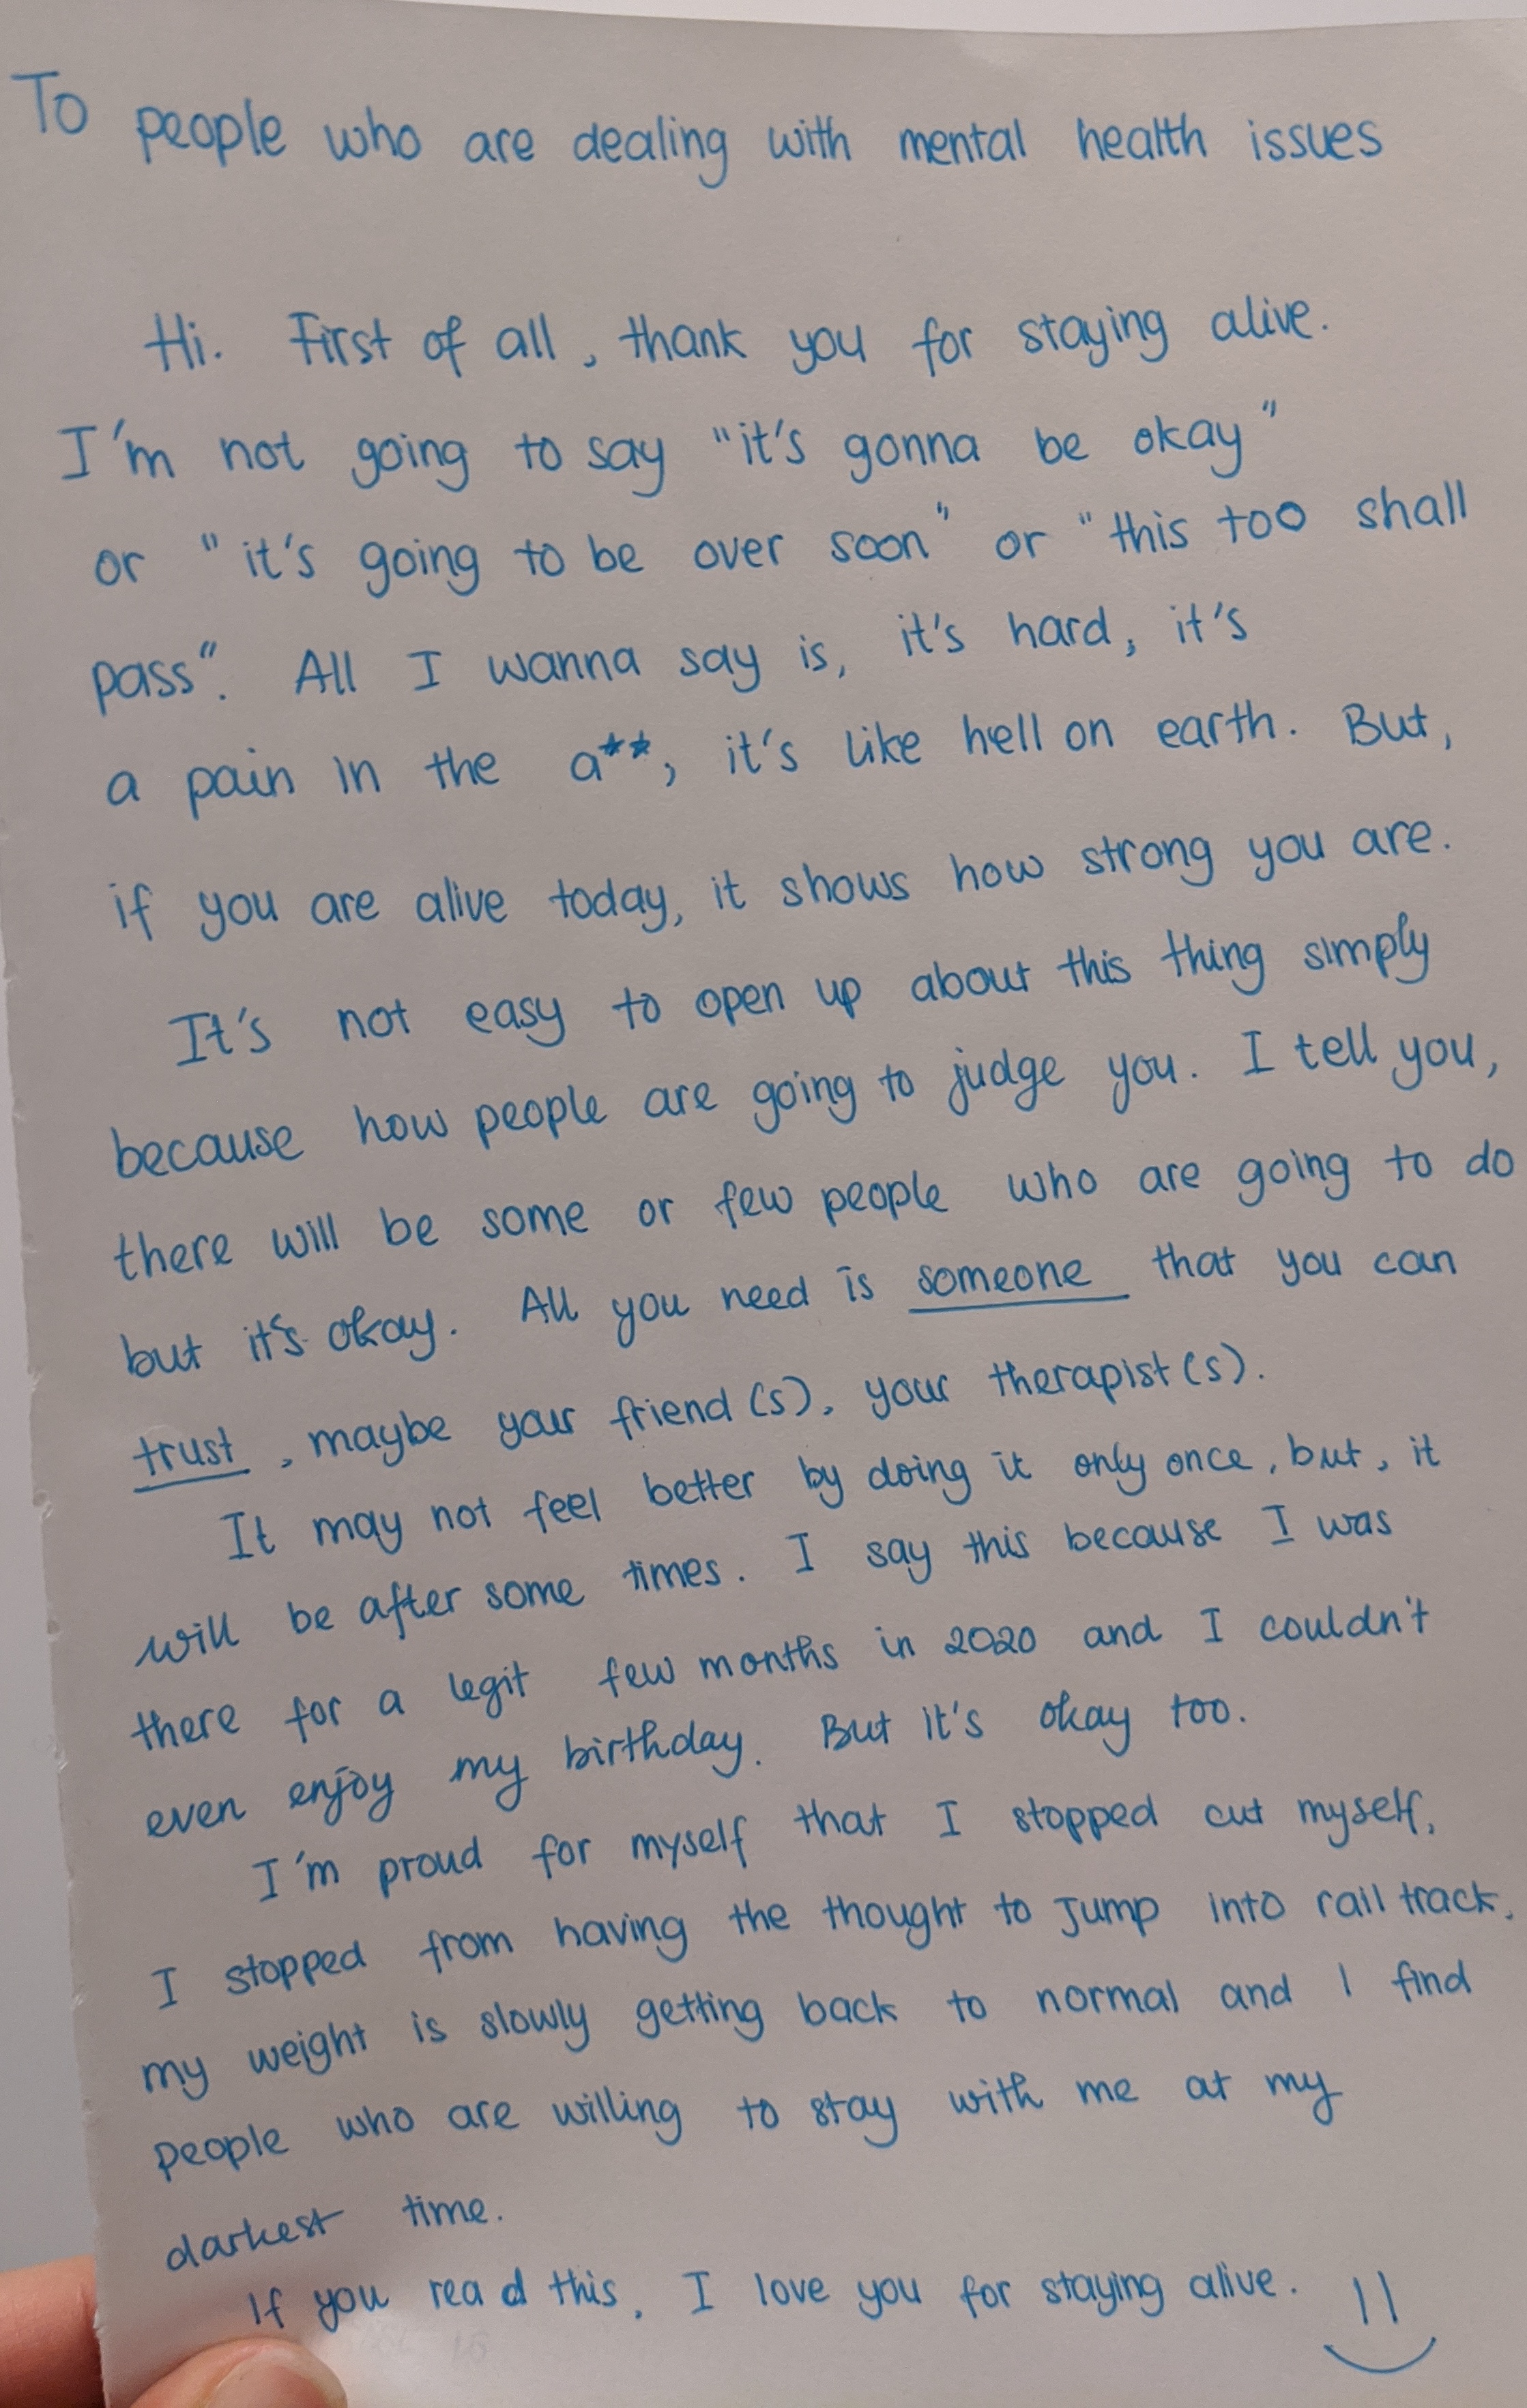 To people who are dealing with mental health issues
Hi. First of all, thank you for staying alive.
I'm not going to say "it's gonna be okay"
or "it's going to be over soon" or "this too shall
pass". All I wanna say is, it's hard, it's
a pain in the a**, it's like hell on earth. But,
if you are alive today, it shows how strong you are.
It's not easy to open up about this thing simply
because how people are going to judge you. I tell you,
there will be some or few people who are going to do
but it's okay. All you need is someone that you can
trust, maybe your friend(s), your therapist(s).
It may not feel better by doing it only once, but, it
will be after some times. I say this because I was
there for a legit few months in 2020 and I couldn't
even enjoy my birthday. But it's okay too.
I'm proud for myself that I stopped cut myself,
I stopped from having the thought to jump into rail track,
my weight is slowly getting back to normal and I find
people who are willing to stay with me at my
darkest time.
If you read this, I love you for staying alive.